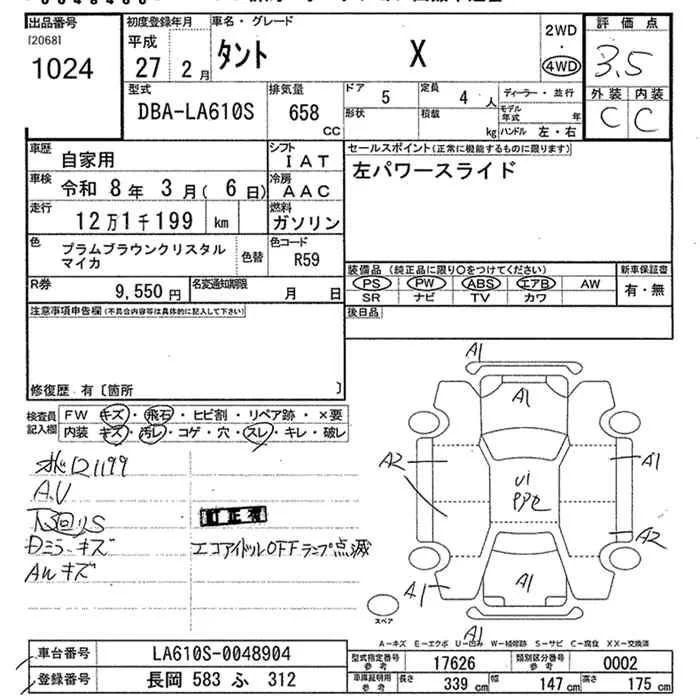 出品番号 初度登録年月 車名・グレード 評価点
[2068] 平成 2WD
1024 27 2月 タント X ・ 3.5
4WD
型式 排気量 ドア 定員 ディーラー・並行 外装 内装
DBA-LA610S 658 5 4人 モデル年式 年 C C
CC 形状 積載 kg ハンドル 左・右
車歴 自家用 シフト IAT セールスポイント(正常に機能するものに限ります)
車検 令和 8年 3月(6日) 冷房 AAC 左パワースライド
走行 12万1千199 km 燃料 ガソリン
色 プラムブラウンクリスタル 色替 色コード R59
マイカ
装備品(純正品に限り○をつけてください) 新車保証書
R券 9,550円 名変通知期限 月 日 PS PW ABS エアB AW 有・無
SR ナビ TV カワ
注意事項申告欄(不具合内容等は具体的に記入して下さい) 後日品
修復歴 有〔箇所 〕
検査員記入欄 FW キズ・飛石・ヒビ割・リペア跡・×要
内装 キズ・汚レ・コゲ・穴・スレ・キレ・破レ
A.V
下回りS 訂正有
Dミラーキズ エコアイドルOFFランプ点滅
AWキズ
A1
A1
A2 A1
A2
A1 A1
A1
スペア
A-キズ E-エクボ U-凹み W-補修跡 S-サビ C-腐食 XX-交換済
車台番号 LA610S-0048904 型式指定番号 参考 17626 類別区分番号 参考 0002
登録番号 長岡 583 ふ 312 車庫証明用 参考 長さ 339cm 幅 147cm 高さ 175cm